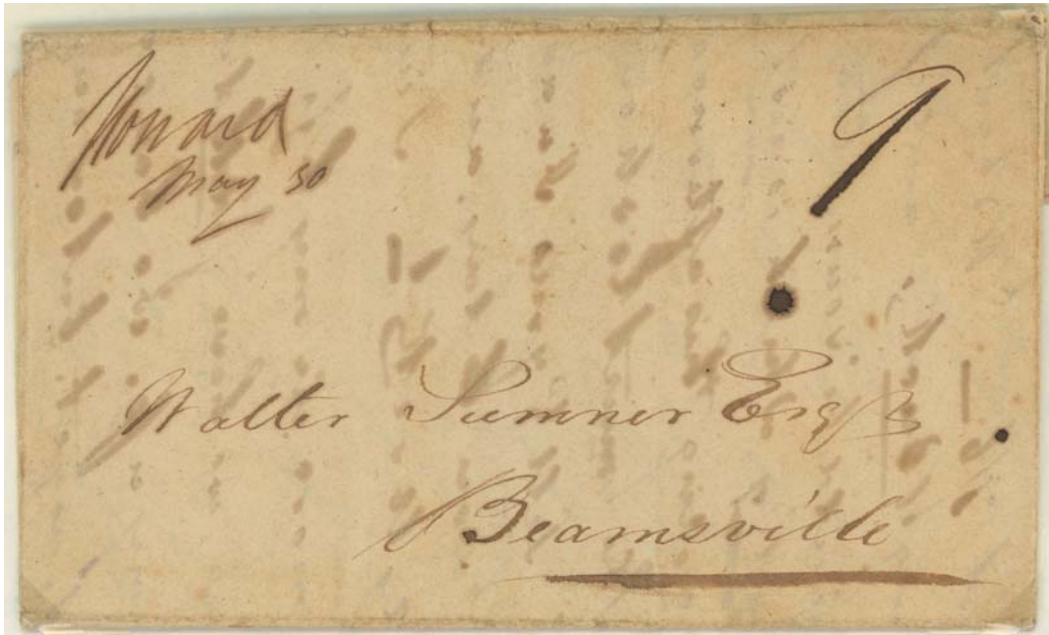 Howard
May 30
9
Walter Sumner Esqr
Beamsville